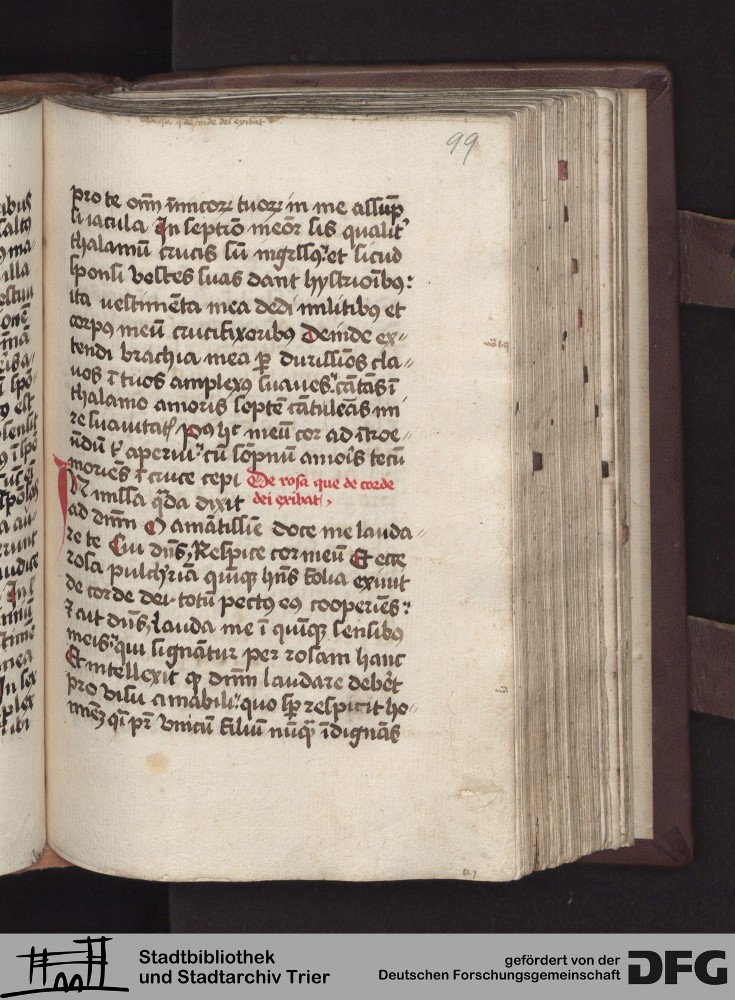 99
pro te om̄ī inimicoꝝ tuoꝝ in me assūp
si iacula In septīo meōr sis qualit᷒
thalamū crucis sū īngrssꝰ et sicud
sponsi vestes suas dant hystrioībꝰ:
ita uestimēta mea dedi militibꝰ et
corpꝰ meū crucifixoribꝰ Deinde ex-
tendi brachia mea ꝑ durissīos cla-
uos ī tuos amplexꝰ suaues: cātās ī
thalamo amoris septē cātilēas mi
re suauitatꝭ Pꝰ hͦ meū cor ad ītroe-
ūdū t᷒ aperui: cū sōpnū amoīs tecū
moriēs ī cruce cepi De rosa que de corde
dei exibat,
In missa q̄da dixit
ad dn̄m O amātissīe doce me lauda-
re te Cui dn̄s, Respice cor meū Et ecce
rosa pulchʳiā quīqꝫ hn̄s folia exiuit
de corde dei totū pectꝰ eꝰ cooperiēs:
⁊ ait dn̄s, lauda me ī quīqꝫ sensibꝰ
meis: qui signātur per rosam hanc
Et intellexit ꝙ dn̄m laudare debēt
pro visu amabili: quo sꝑ respicit ho-
mīeꝫ qͥ pr̄ vnicū filiū nūqͣ̄ īdignās
Stadtbibliothek
und Stadtarchiv Trier
gefördert von der
Deutschen Forschungsgemeinschaft
DFG